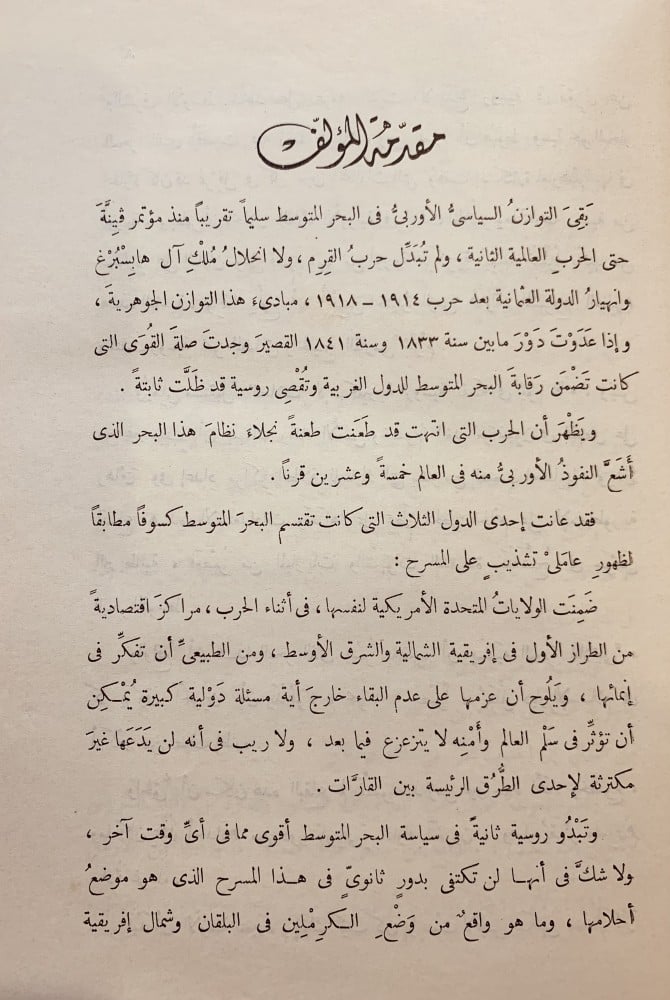 مقدّمة المؤلّف
بَقِيَ التوازنُ السياسىُّ الأوربىُّ فى البحر المتوسط سليماً تقريباً منذ مؤتمر ڤِينَّةَ
حتى الحربِ العالمية الثانية ، ولم تُبَدِّل حربُ القِرِم ، ولا انحلالُ مُلْكِ آل هابِسْبُرْغ
وانهيارُ الدولة العثمانية بعد حرب ١٩١٤ – ١٩١٨ ، مبادئَ هذا التوازن الجوهريةَ ،
وإذا عَدَوْتَ دَوْرَ مابين سنة ١٨٣٣ وسنة ١٨٤١ القصيرَ وجدتَ صلةَ القُوَى التى
كانت تَضْمَن رَقابةَ البحر المتوسط للدول الغربية وتُقْصِى روسية قد ظَلَّت ثابتةً .
ويَظْهَرَ أن الحرب التى انتهت قد طَعَنت طعنةً نجلاءَ نظامَ هذا البحر الذى
أَشَعَّ النفوذُ الأوربىُّ منه فى العالم خمسةً وعشرين قرناً .
فقد عانت إحدى الدول الثلاث التى كانت تقتسم البحرَ المتوسط كسوفاً مطابقاً
لظهورِ عاملَىْ تشذيبٍ على المسرح :
ضَمِنَت الولاياتُ المتحدة الأمريكية لنفسها ، فى أثناء الحرب ، مراكزَ اقتصاديةً
من الطراز الأول فى إفريقية الشمالية والشرق الأوسط ، ومن الطبيعىِّ أن تفكِّر فى
إنمائها ، ويَلُوح أن عزمها على عدم البقاء خارجَ أية مسئلة دَوْلية كبيرة يُمْكِن
أن تؤثِّر فى سَلْم العالم وأَمْنِه لا يتزعزع فيما بعد ، ولا ريب فى أنه لن يَدَعَها غيرَ
مكترثة لإحدى الطُّرُق الرئيسة بين القارَّات .
وتَبْدُو روسية ثانيةً فى سياسة البحر المتوسط أقوى مما فى أىِّ وقت آخر ،
ولا شكَّ فى أنها لن تكتفى بدورٍ ثانوىٍّ فى هذا المسرح الذى هو موضعُ
أحلامها ، وما هو واقعٌ من وَضْعِ الكرِمْلِين فى البلقان وشمال إفريقية